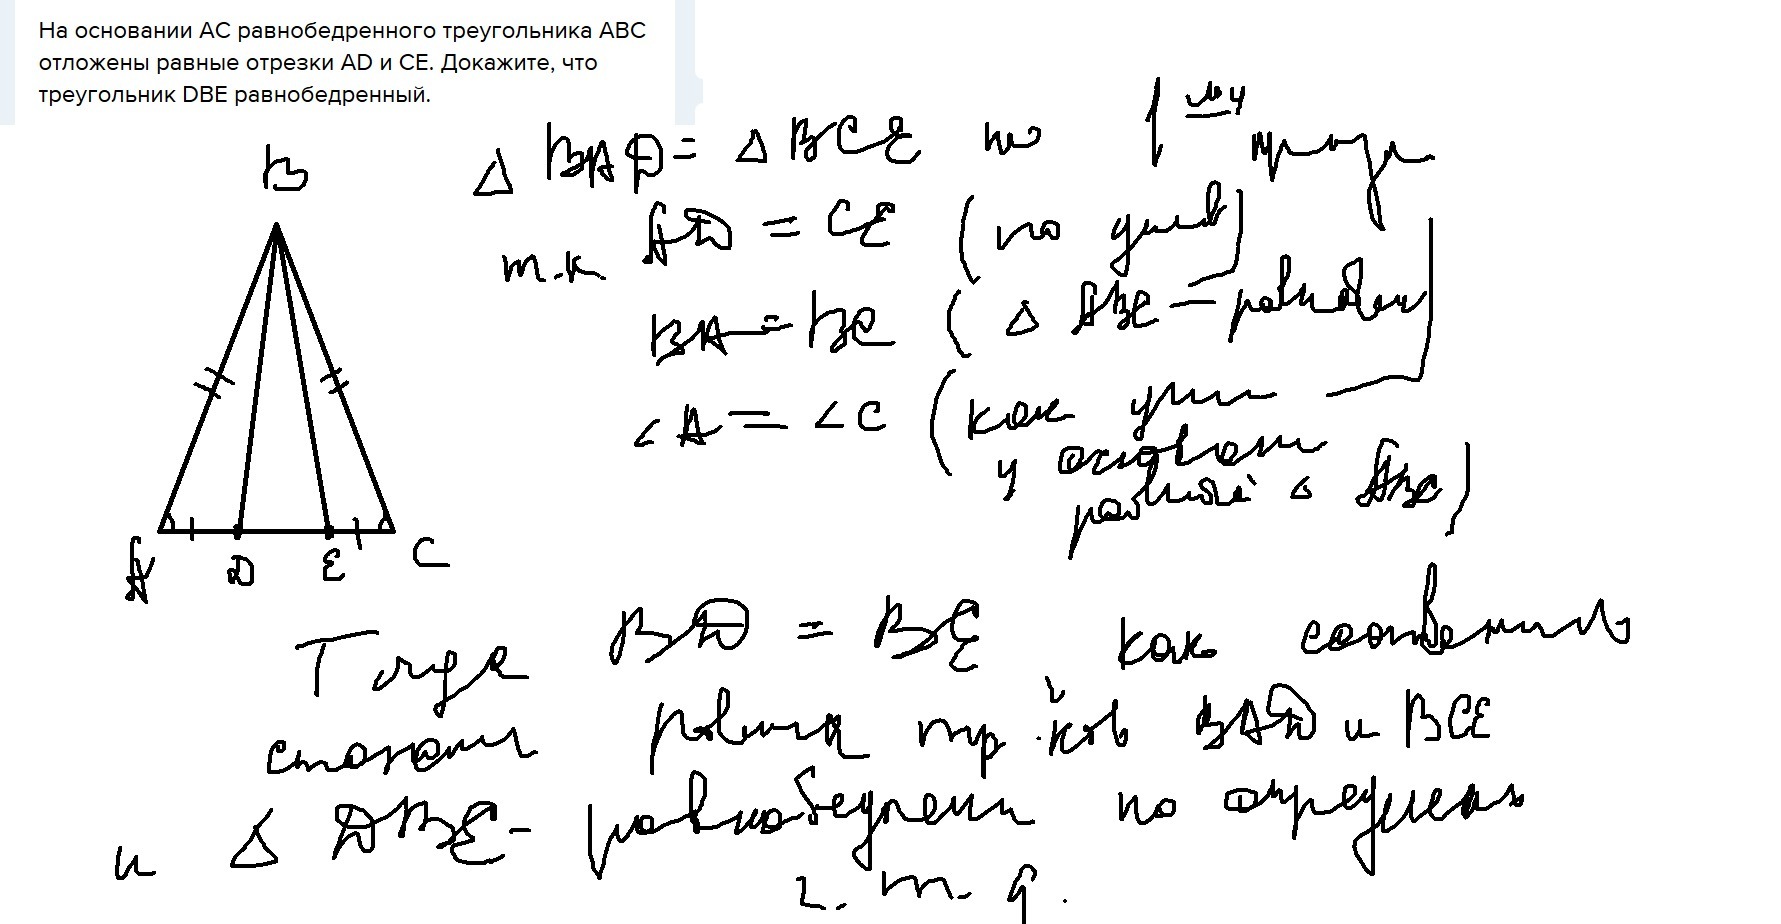 На основании АС равнобедренного треугольника АВС
отложены равные отрезки AD и CE. Докажите, что
треугольник DBE равнобедренный.
№4
△ BAD = △ BCE по 1 призн
т.к AD = CE (по услов)
BA = BC (△ ABC – равнобед)
∠A = ∠C (как угл
у основан
равноб △ ABC)
B
A D E C
Тогда BD = BE как соответств
сторон равных тр-ков BAD и BCE
и △ DBE – равнобедрен по определен
ч.т.д.